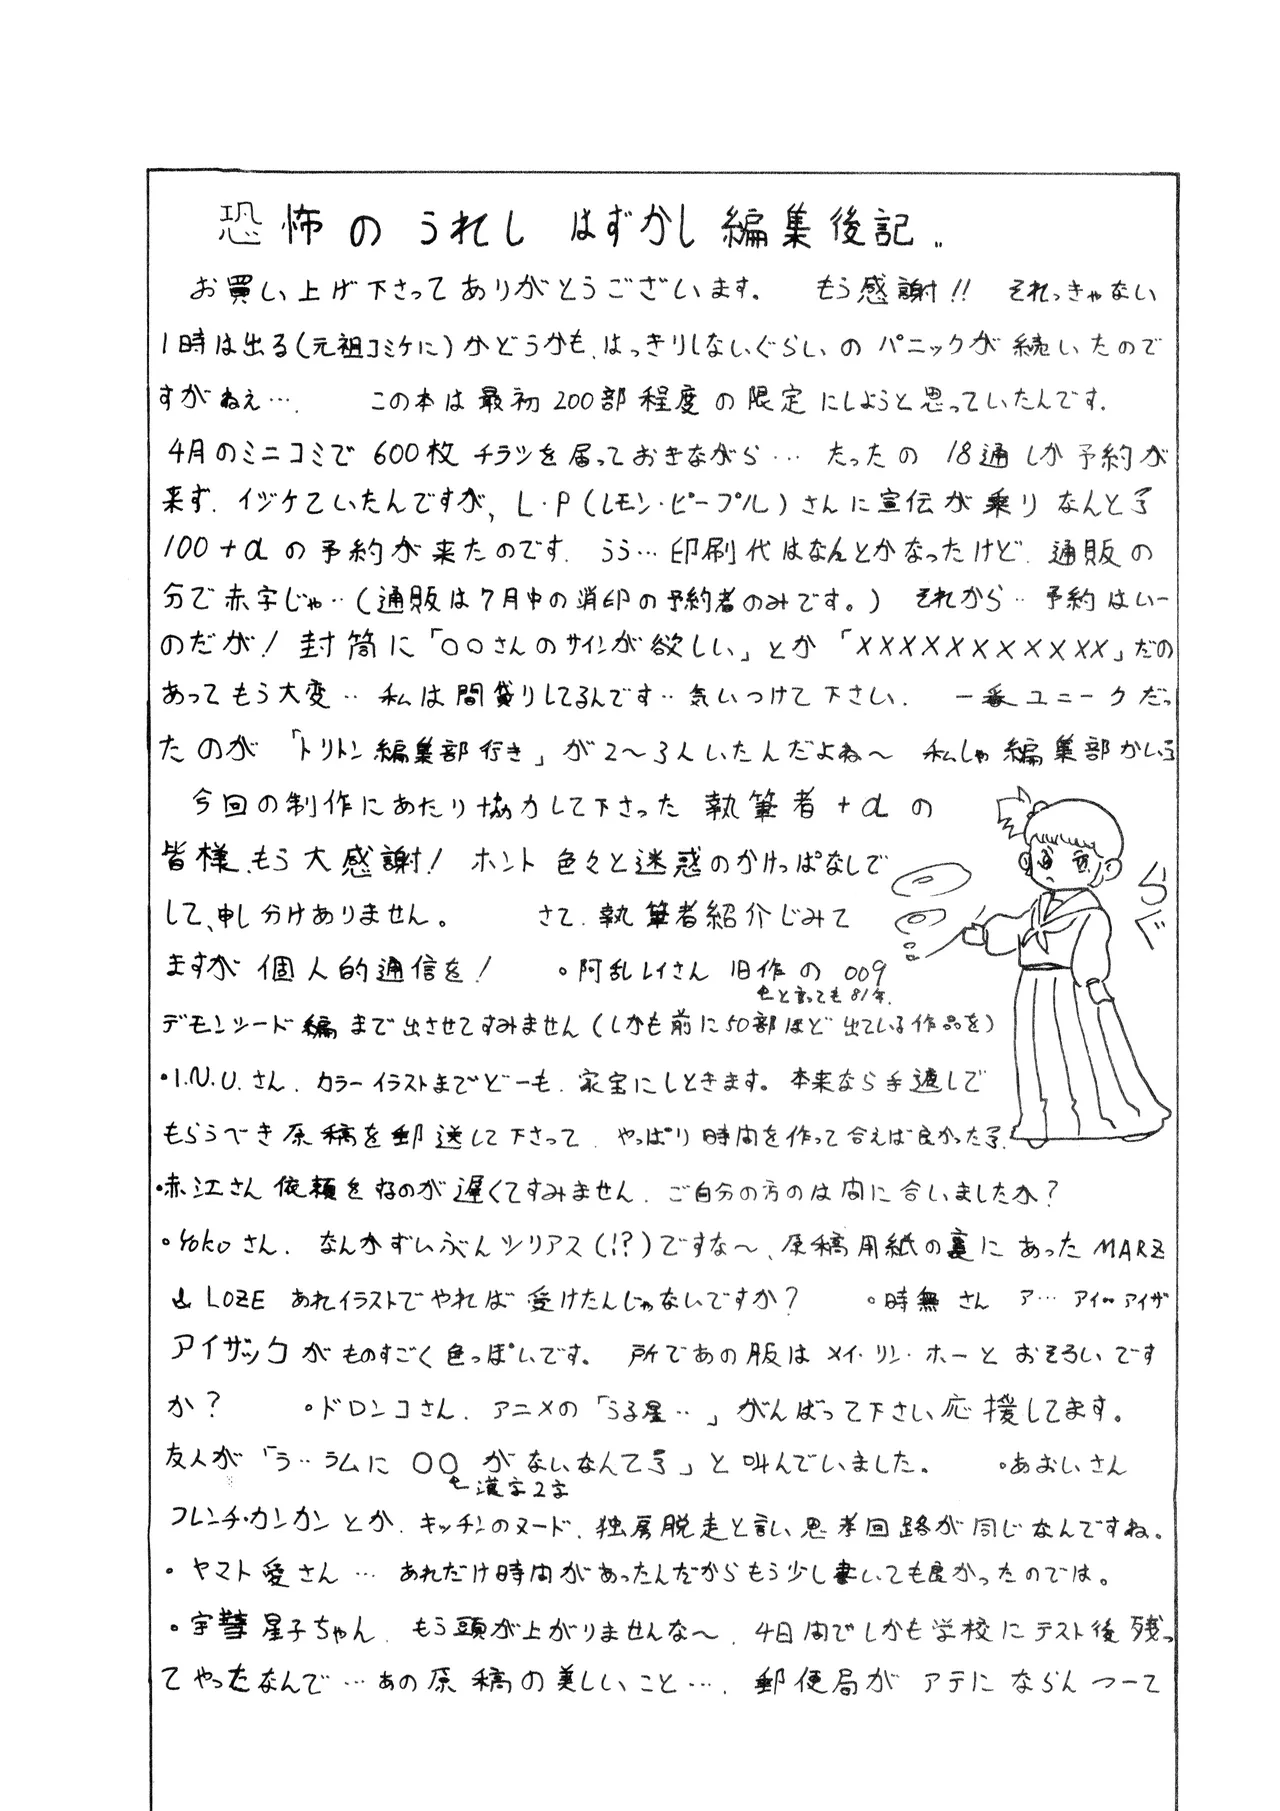 恐怖の うれし はずかし 編集後記..
お買い上げ下さってありがとうございます。 もう感謝!! それっきゃない
1時は出る(元祖コミケに)かどうかも、はっきりしないぐらいの パニックが 続いたので
すがねぇ…. この本は最初200部程度の限定にしようと思っていたんです.
4月のミニコミで 600枚 チラシを届っておきながら… たったの 18通しか予約が
来ず. イジケていたんですが, L・P(レモン・ピープル)さんに宣伝が乗り なんと
100+αの予約が来たのです. うう…印刷代はなんとかなったけど. 通販の
分で赤字じゃ‥(通販は7月中の消印の予約者のみです。) それから‥予約はいー
のだが! 封筒に「〇〇さんのサインが欲しい」とか「×××××××××××」だの
あってもう大変‥私は間貸りしてるんです‥気いつけて下さい. 一番ユニークだっ
たのが 「トリトン編集部行き」が2〜3人いたんだよね〜 私しゃ編集部かい
今回の制作にあたり協力して下さった 執筆者+αの
皆様、もう大感謝! ホント色々と迷惑のかけっぱなしで
して、申し分けありません。 さて、執筆者紹介じみて
ますが個人的通信を! 。阿乱レイさん 旧作の 009
と言っても81年.
デモンシード編まで出させてすみません(しかも前に50部ほど出ている作品を)
・I.N.U.さん. カラーイラストまでどーも. 家宝にしときます。本来なら手渡しで
もらうべき原稿を郵送して下さって. やっぱり時間を作って会えば良かった
・赤江さん 依頼をするのが遅くてすみません. ご自分の方のは間に合いましたか?
。Yokoさん. なんかずいぶんシリアス(!?)ですな〜、原稿用紙の裏にあった MARZ
& LOZE あれイラストでやれば受けたんじゃないですか? 。時無さん ア… アイ‥アイザ
アイザックがものすごく色っぽいです。 所であの服は メイ・リン・ホーと おそろいです
か? 。ドロンコさん. アニメの「うる星‥」がんばって下さい応援してます。
友人が「ラ‥ラムに 〇〇がないなんて」と叫んでいました。 。あおいさん
漢字2字
フレンチ・カンカンとか. キッチンのヌード. 独房脱走と言い思考回路が同じなんですね。
・ヤマト愛さん … あれだけ時間があったんだからもう少し書いても良かったのでは。
。宇彗星子ちゃん. もう頭が上がりませんな〜. 4日間でしかも学校にテスト後残っ
てやったなんで…あの原稿の美しいこと…. 郵便局が アテにならんつーて
らぐ